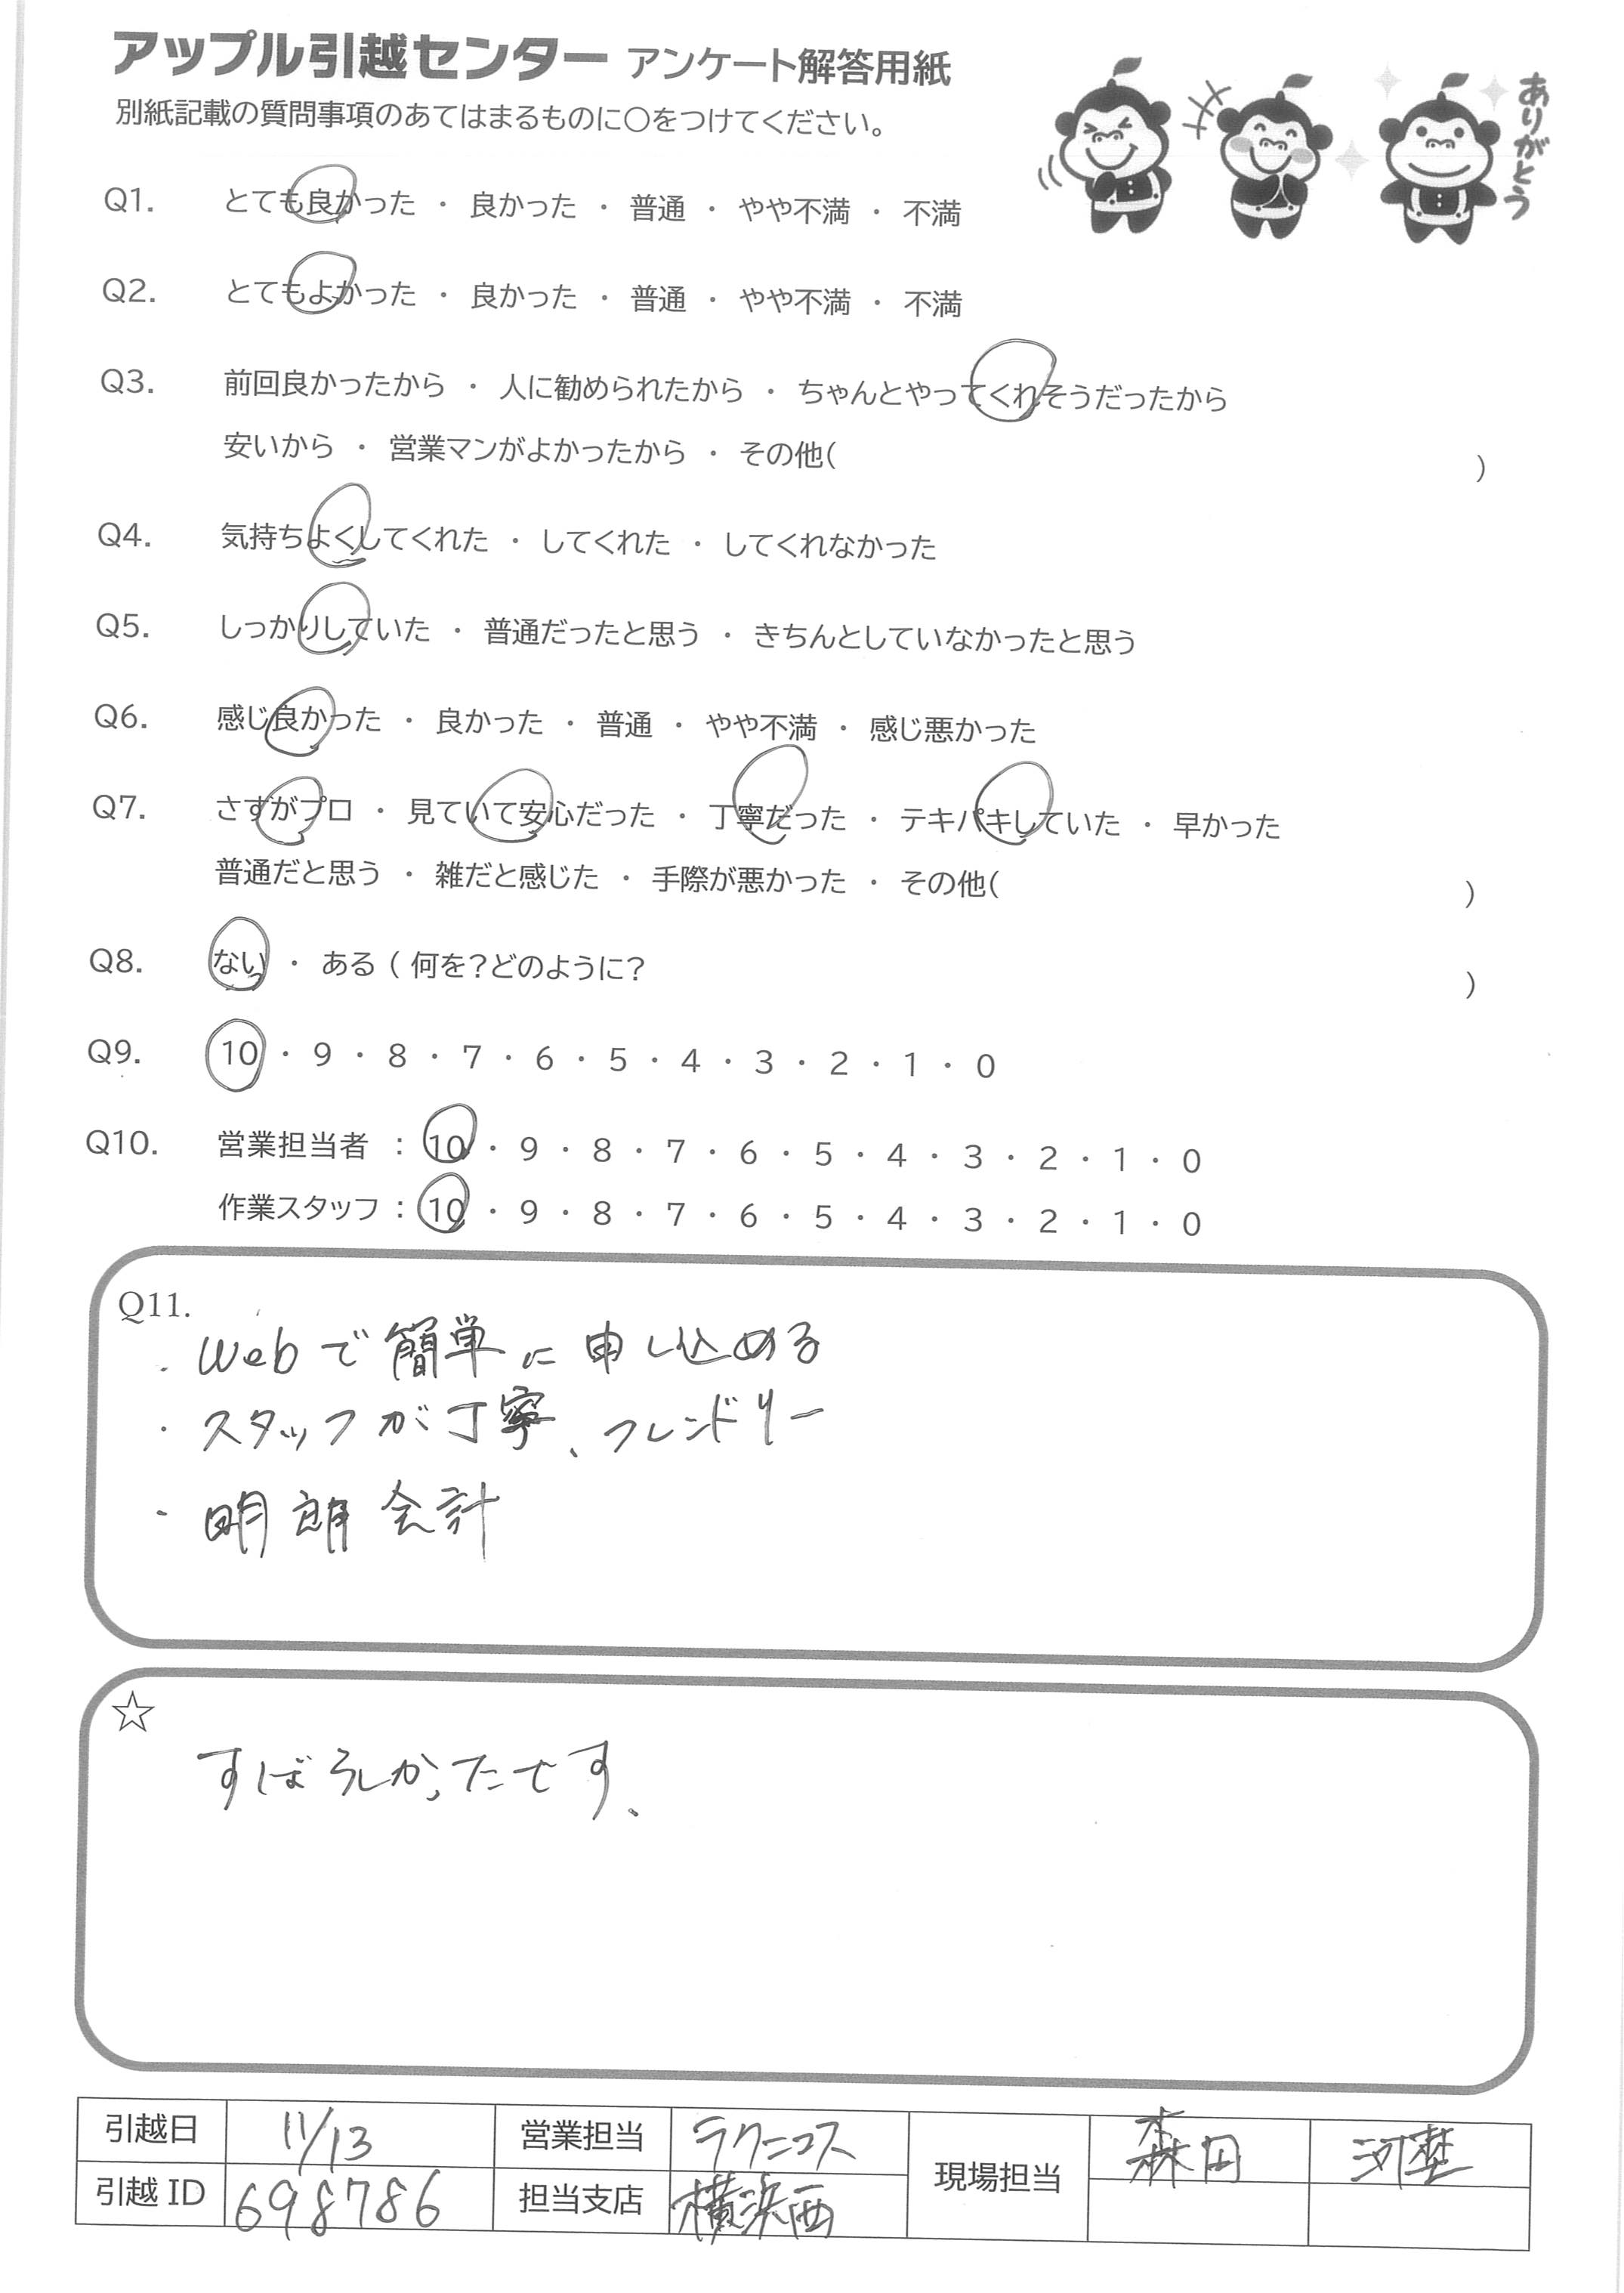 アップル引越センター アンケート解答用紙
別紙記載の質問事項のあてはまるものに○をつけてください。
ありがとう
Q1. とても良かった ・ 良かった ・ 普通 ・ やや不満 ・ 不満
Q2. とてもよかった ・ 良かった ・ 普通 ・ やや不満 ・ 不満
Q3. 前回良かったから ・ 人に勧められたから ・ ちゃんとやってくれそうだったから
安いから ・ 営業マンがよかったから ・ その他( )
Q4. 気持ちよくしてくれた ・ してくれた ・ してくれなかった
Q5. しっかりしていた ・ 普通だったと思う ・ きちんとしていなかったと思う
Q6. 感じ良かった ・ 良かった ・ 普通 ・ やや不満 ・ 感じ悪かった
Q7. さすがプロ ・ 見ていて安心だった ・ 丁寧だった ・ テキパキしていた ・ 早かった
普通だと思う ・ 雑だと感じた ・ 手際が悪かった ・ その他( )
Q8. ない ・ ある ( 何を?どのように? )
Q9. 10 ・ 9 ・ 8 ・ 7 ・ 6 ・ 5 ・ 4 ・ 3 ・ 2 ・ 1 ・ 0
Q10. 営業担当者 : 10 ・ 9 ・ 8 ・ 7 ・ 6 ・ 5 ・ 4 ・ 3 ・ 2 ・ 1 ・ 0
作業スタッフ : 10 ・ 9 ・ 8 ・ 7 ・ 6 ・ 5 ・ 4 ・ 3 ・ 2 ・ 1 ・ 0
Q11.
・Webで簡単に申し込める
・スタッフが丁寧、フレンドリー
・明朗会計
☆
すばらしかったです、
引越日 11/13 営業担当 ラクニコス 現場担当 森田
引越ID 698786 担当支店 横浜西